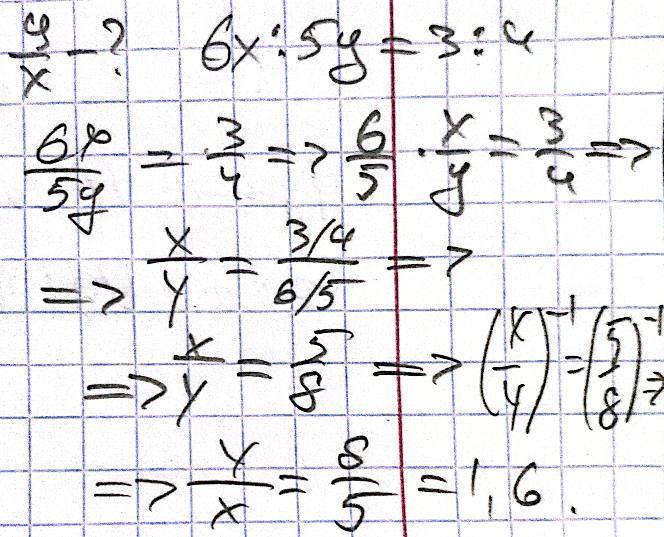 y/x - ? 6x : 5y = 3 : 4
6x/5y = 3/4 => 6/5 · x/y = 3/4 =>
=> x/y = (3/4)/(6/5) =>
=> x/y = 5/8 => (x/y)^-1 = (5/8)^-1 =>
=> y/x = 8/5 = 1,6.